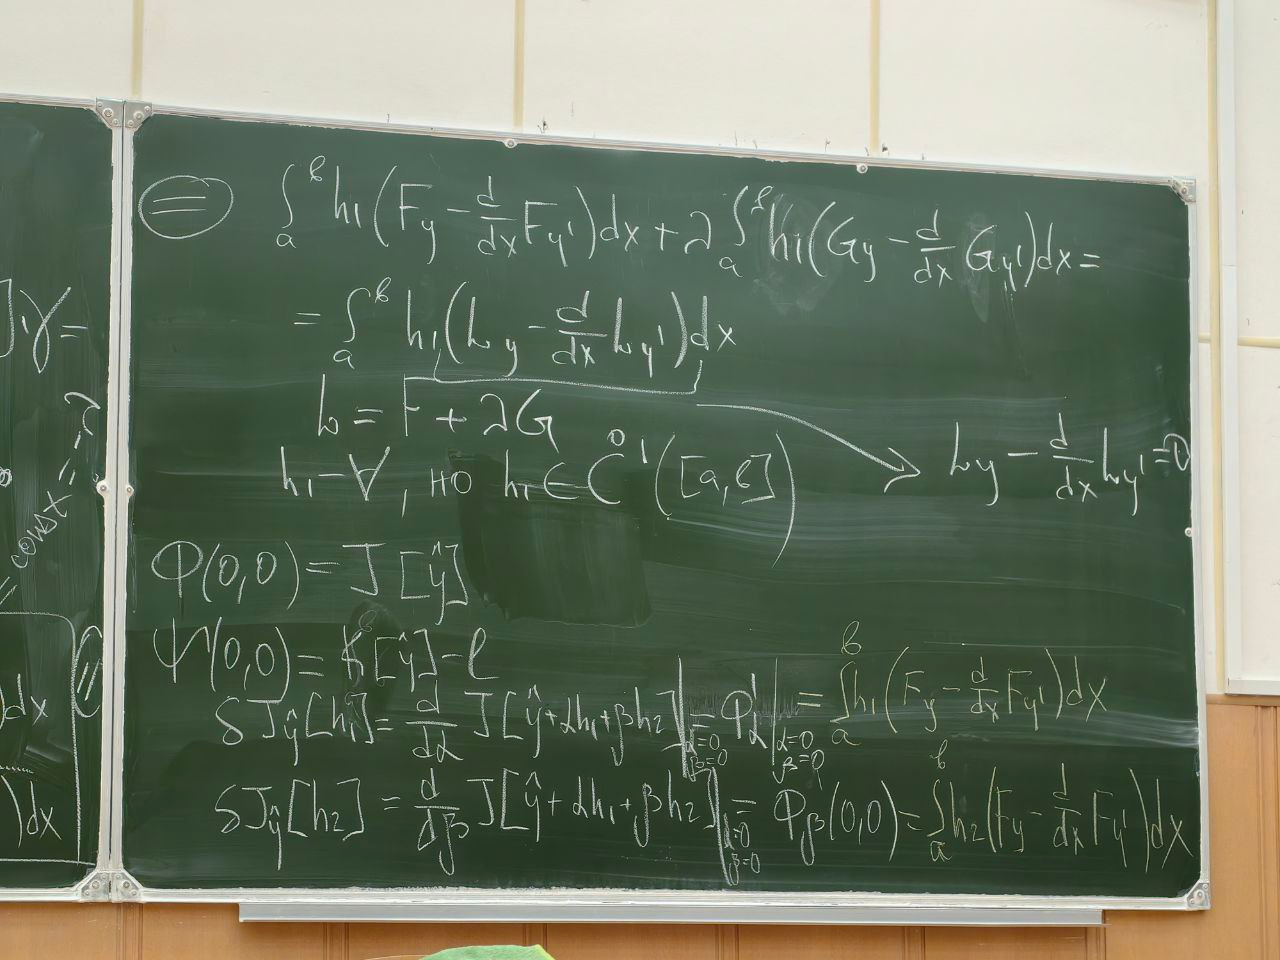 ]'γ =
= const = -λ
dx
)dx
⊜ ∫ₐᵇ h₁(F_y - d/dx F_y')dx + λ ∫ₐᵇ h₁(G_y - d/dx G_y')dx =
= ∫ₐᵇ h₁(L_y - d/dx L_y')dx
L = F + λG
h₁ - ∀, но h₁ ∈ C̊¹([a,b]) → L_y - d/dx L_y' = 0
Φ(0,0) = J[ŷ]
Ψ(0,0) = K[ŷ] - l
δJ_ŷ[h₁] = d/dα J[ŷ + αh₁ + βh₂]|α=0 β=0 = Φ'_α|α=0 β=0 = ∫ₐᵇ h₁(F_y - d/dx F_y')dx
δJ_ŷ[h₂] = d/dβ J[ŷ + αh₁ + βh₂]|α=0 β=0 = Φ_β(0,0) = ∫ₐᵇ h₂(F_y - d/dx F_y')dx